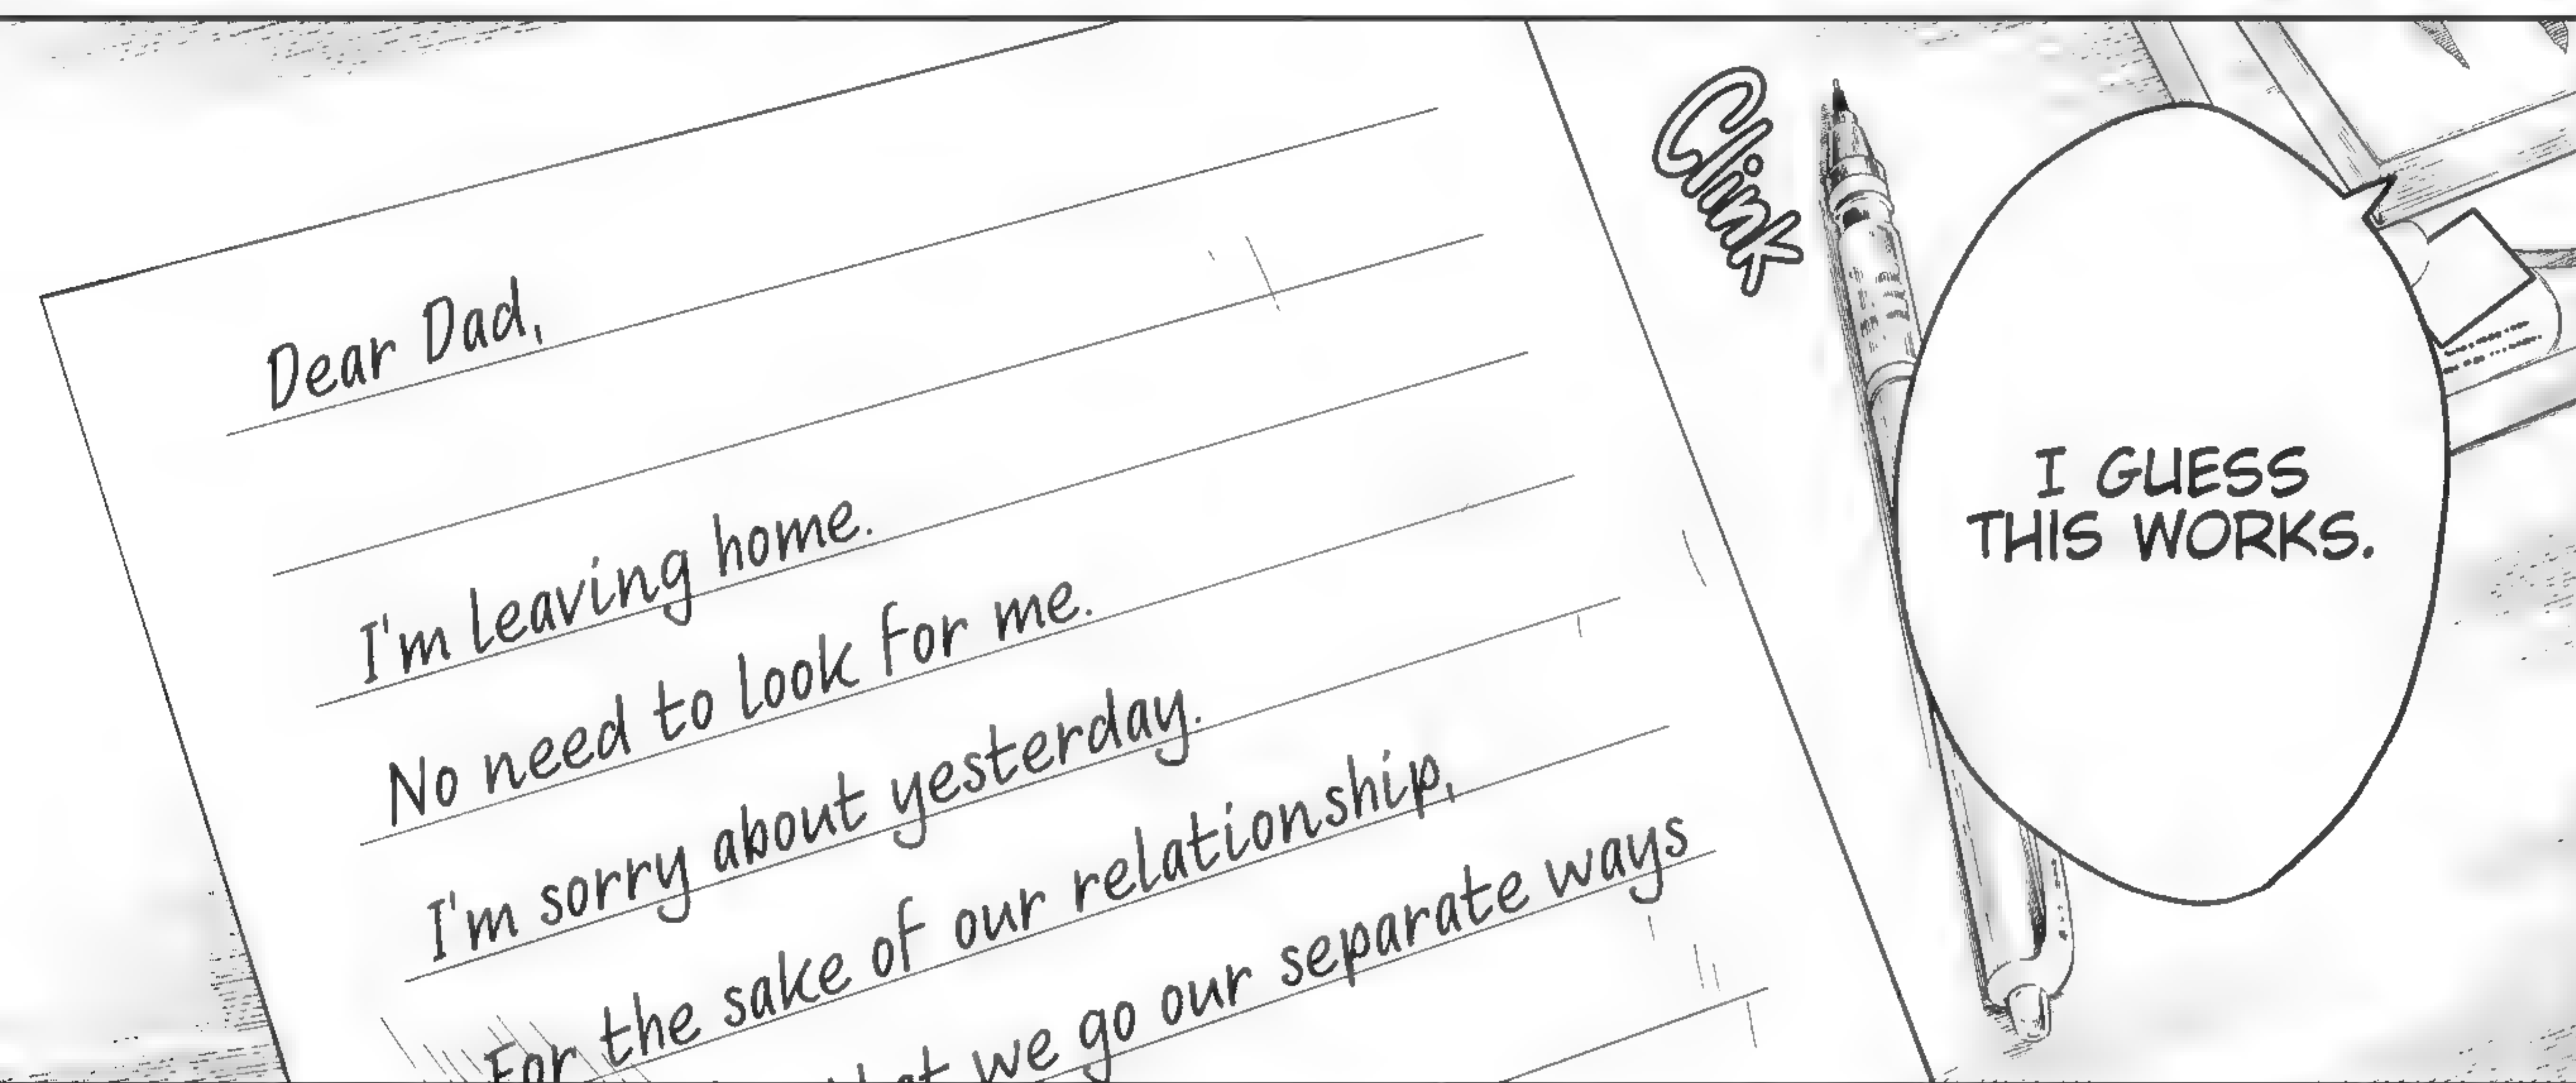 Dear Dad,
I'm leaving home.
No need to look for me.
I'm sorry about yesterday.
For the sake of our relationship,
that we go our separate ways
Clink
I GUESS
THIS WORKS.